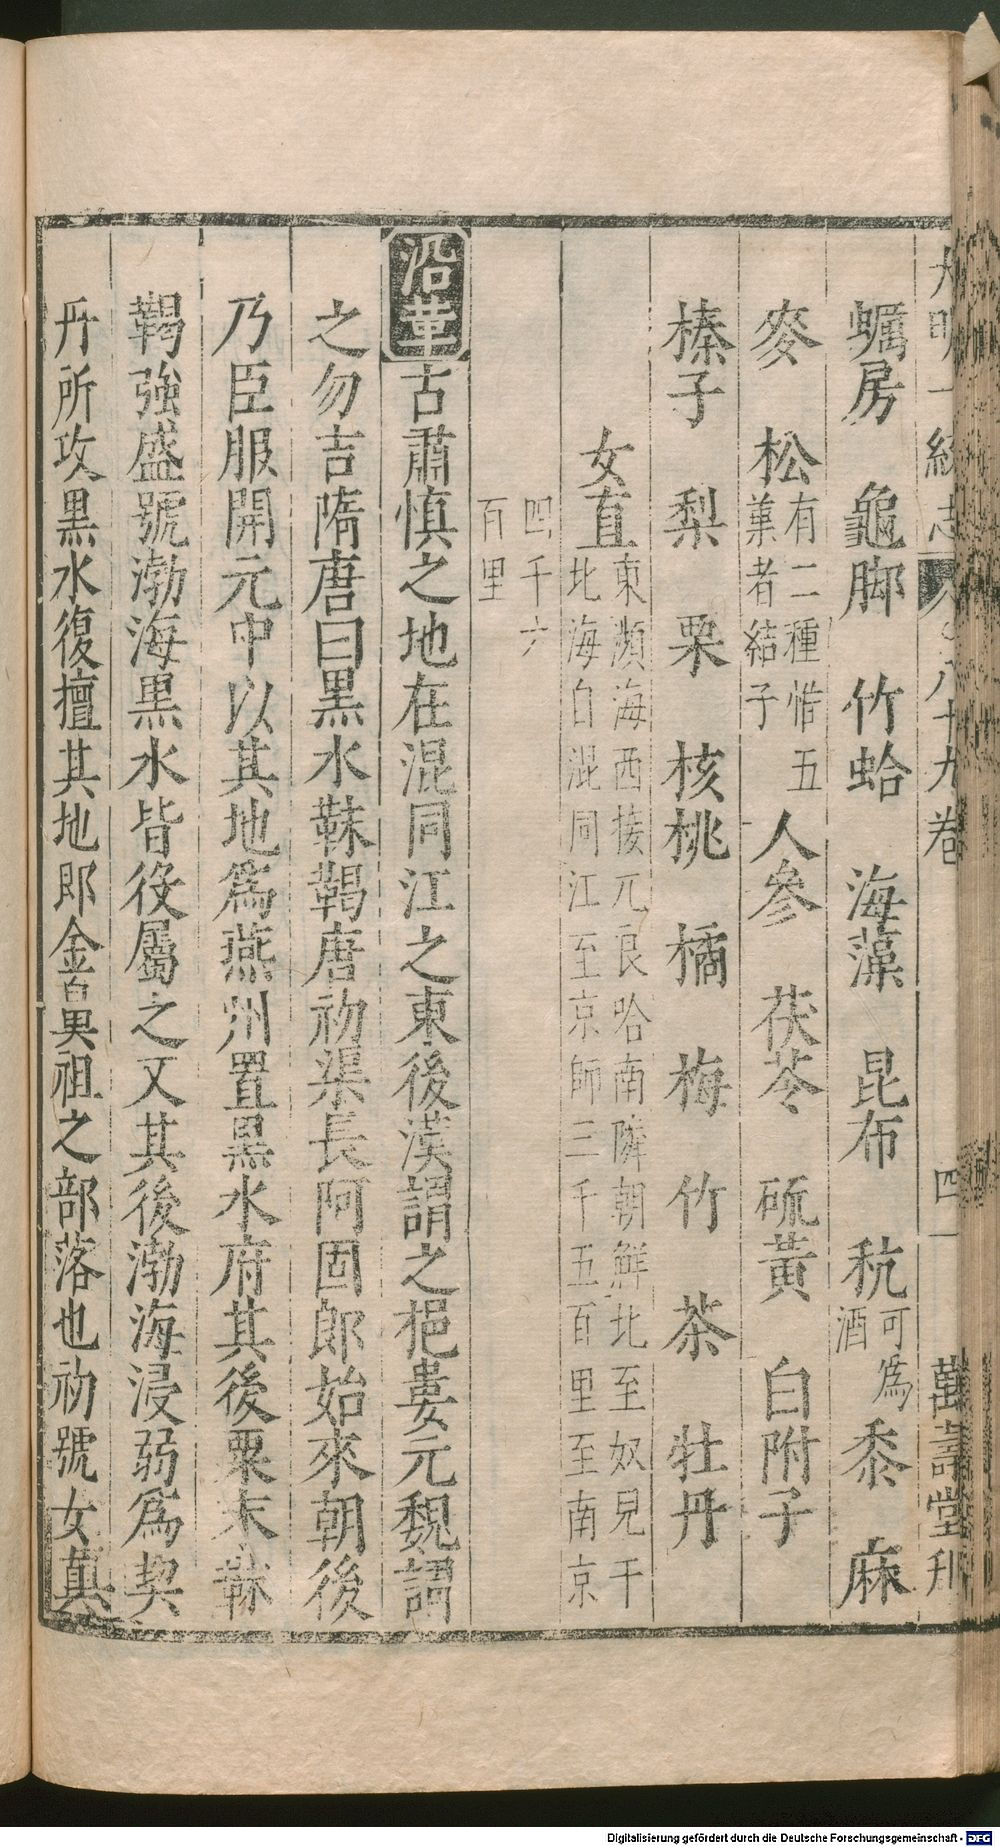 大明一統志 八十九卷 四 萬壽堂刊
蠣房 龜脚 竹蛤 海藻 昆布 秔可爲酒 黍 麻
麥 松有二種惟五葉者結子 人參 茯苓 硫黃 白附子
榛子 梨 栗 核桃 橘 梅 竹 茶 牡丹
女直東瀕海西接兀良哈南隣朝鮮北至奴兒干北海自混同江至京師三千五百里至南京
四千六百里
沿革 古肅慎之地在混同江之東後漢謂之挹婁元魏謂
之勿吉隋唐曰黑水靺鞨唐初渠長阿固郎始來朝後
乃臣服開元中以其地爲燕州置黑水府其後粟末靺
鞨強盛號渤海黑水皆役屬之又其後渤海浸弱爲契
丹所攻黑水復擅其地即金鼻祖之部落也初號女真
Digitalisierung gefördert durch die Deutsche Forschungsgemeinschaft - DFG